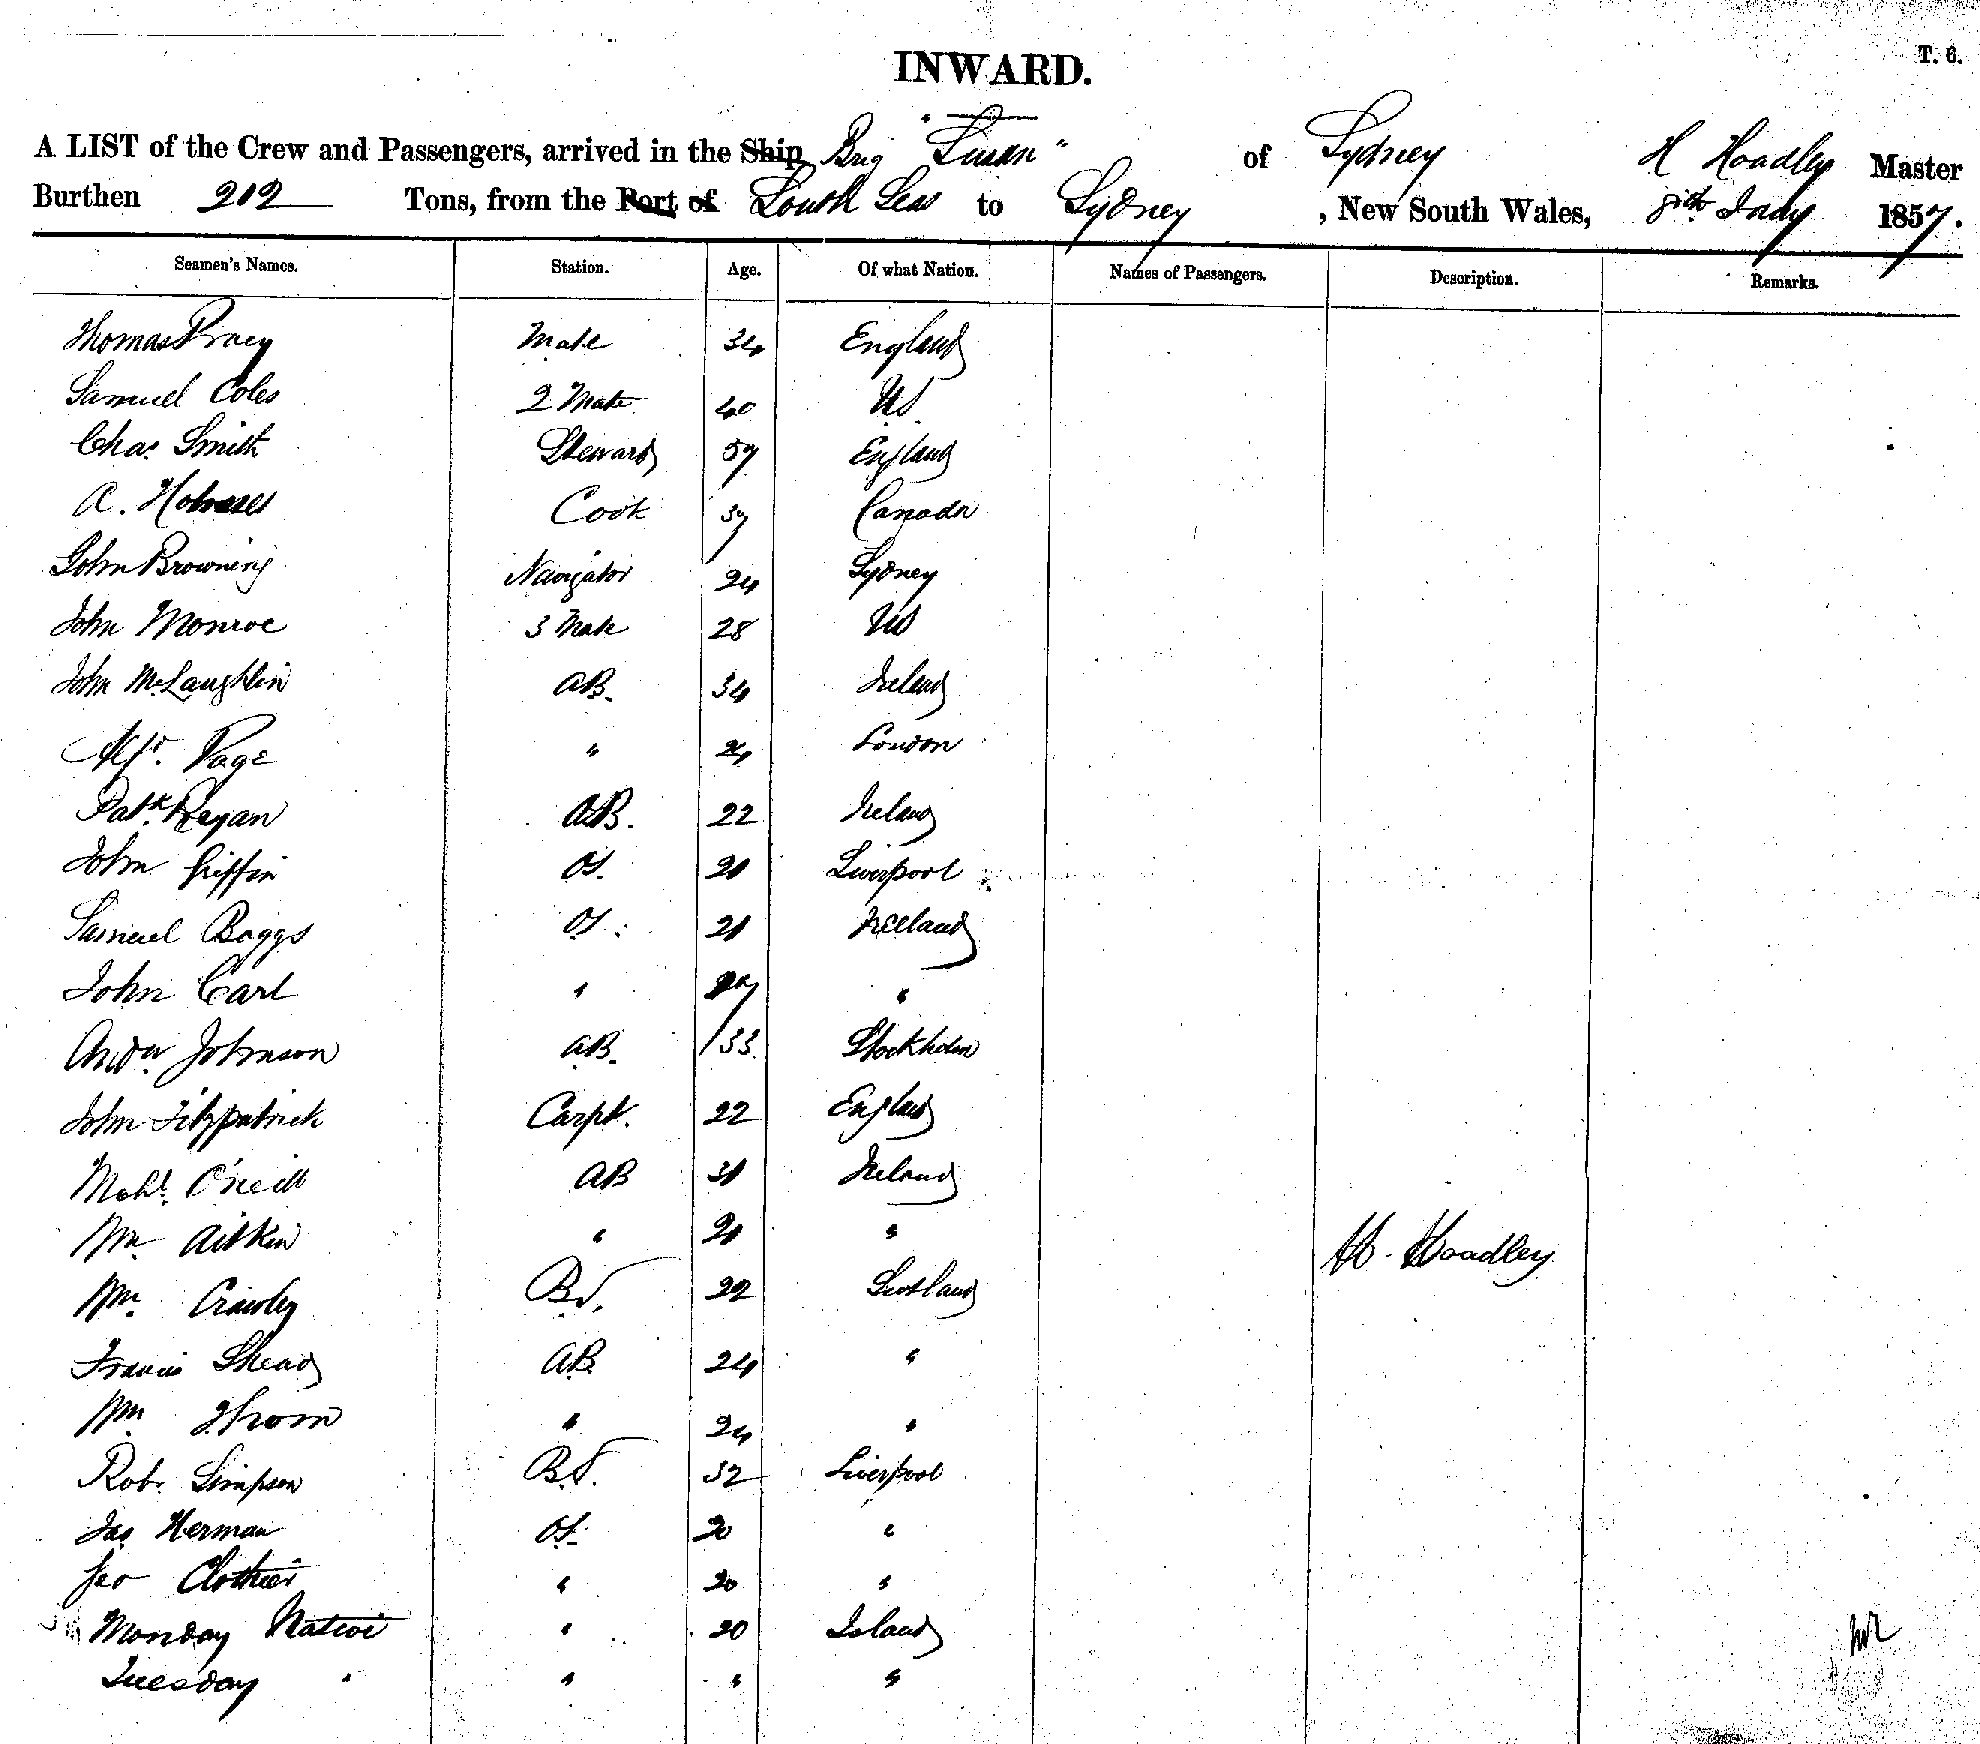 T. 6.
INWARD.
A LIST of the Crew and Passengers, arrived in the Ship Brig "Susan" of Sydney H Hoadley Master
Burthen 212 Tons, from the Port of South Seas to Sydney, New South Wales, 1857.
Seamen's Names. Station. Age. Of what Nation. Names of Passengers. Description. Remarks.
Thomas Mate 34 England
Samuel Coles 2 Mate 40 US
Chas. Smith Steward 57 England
A. Holmes Cook 37 Canada
John Browning Navigator 24 Sydney
John Monroe 3 Mate 28 US
John McLaughlin AB. 34 Ireland
Alfr. Page " 24 London
Patk. Regan AB. 22 Ireland
John Griffin OS. 21 Liverpool
Samuel Boggs OS. 21 Ireland
John Carl " 27 "
Andw Johnson AB. 33 Stockholm
John Fitzpatrick Carpt. 22 England
Mchl. O'Neill AB 31 Ireland
Wm Aitkin " 21 "
H. Hoadley
Wm. Crawley BS. 22 Scotland
Francis Shead AB 24 "
Wm Thom " 24 "
Robt. Simpson BS. 32 Liverpool
Jas Herman OS. 20 "
Geo Clothier " 20 "
Monday Native " 20 Island
Tuesday " " " "